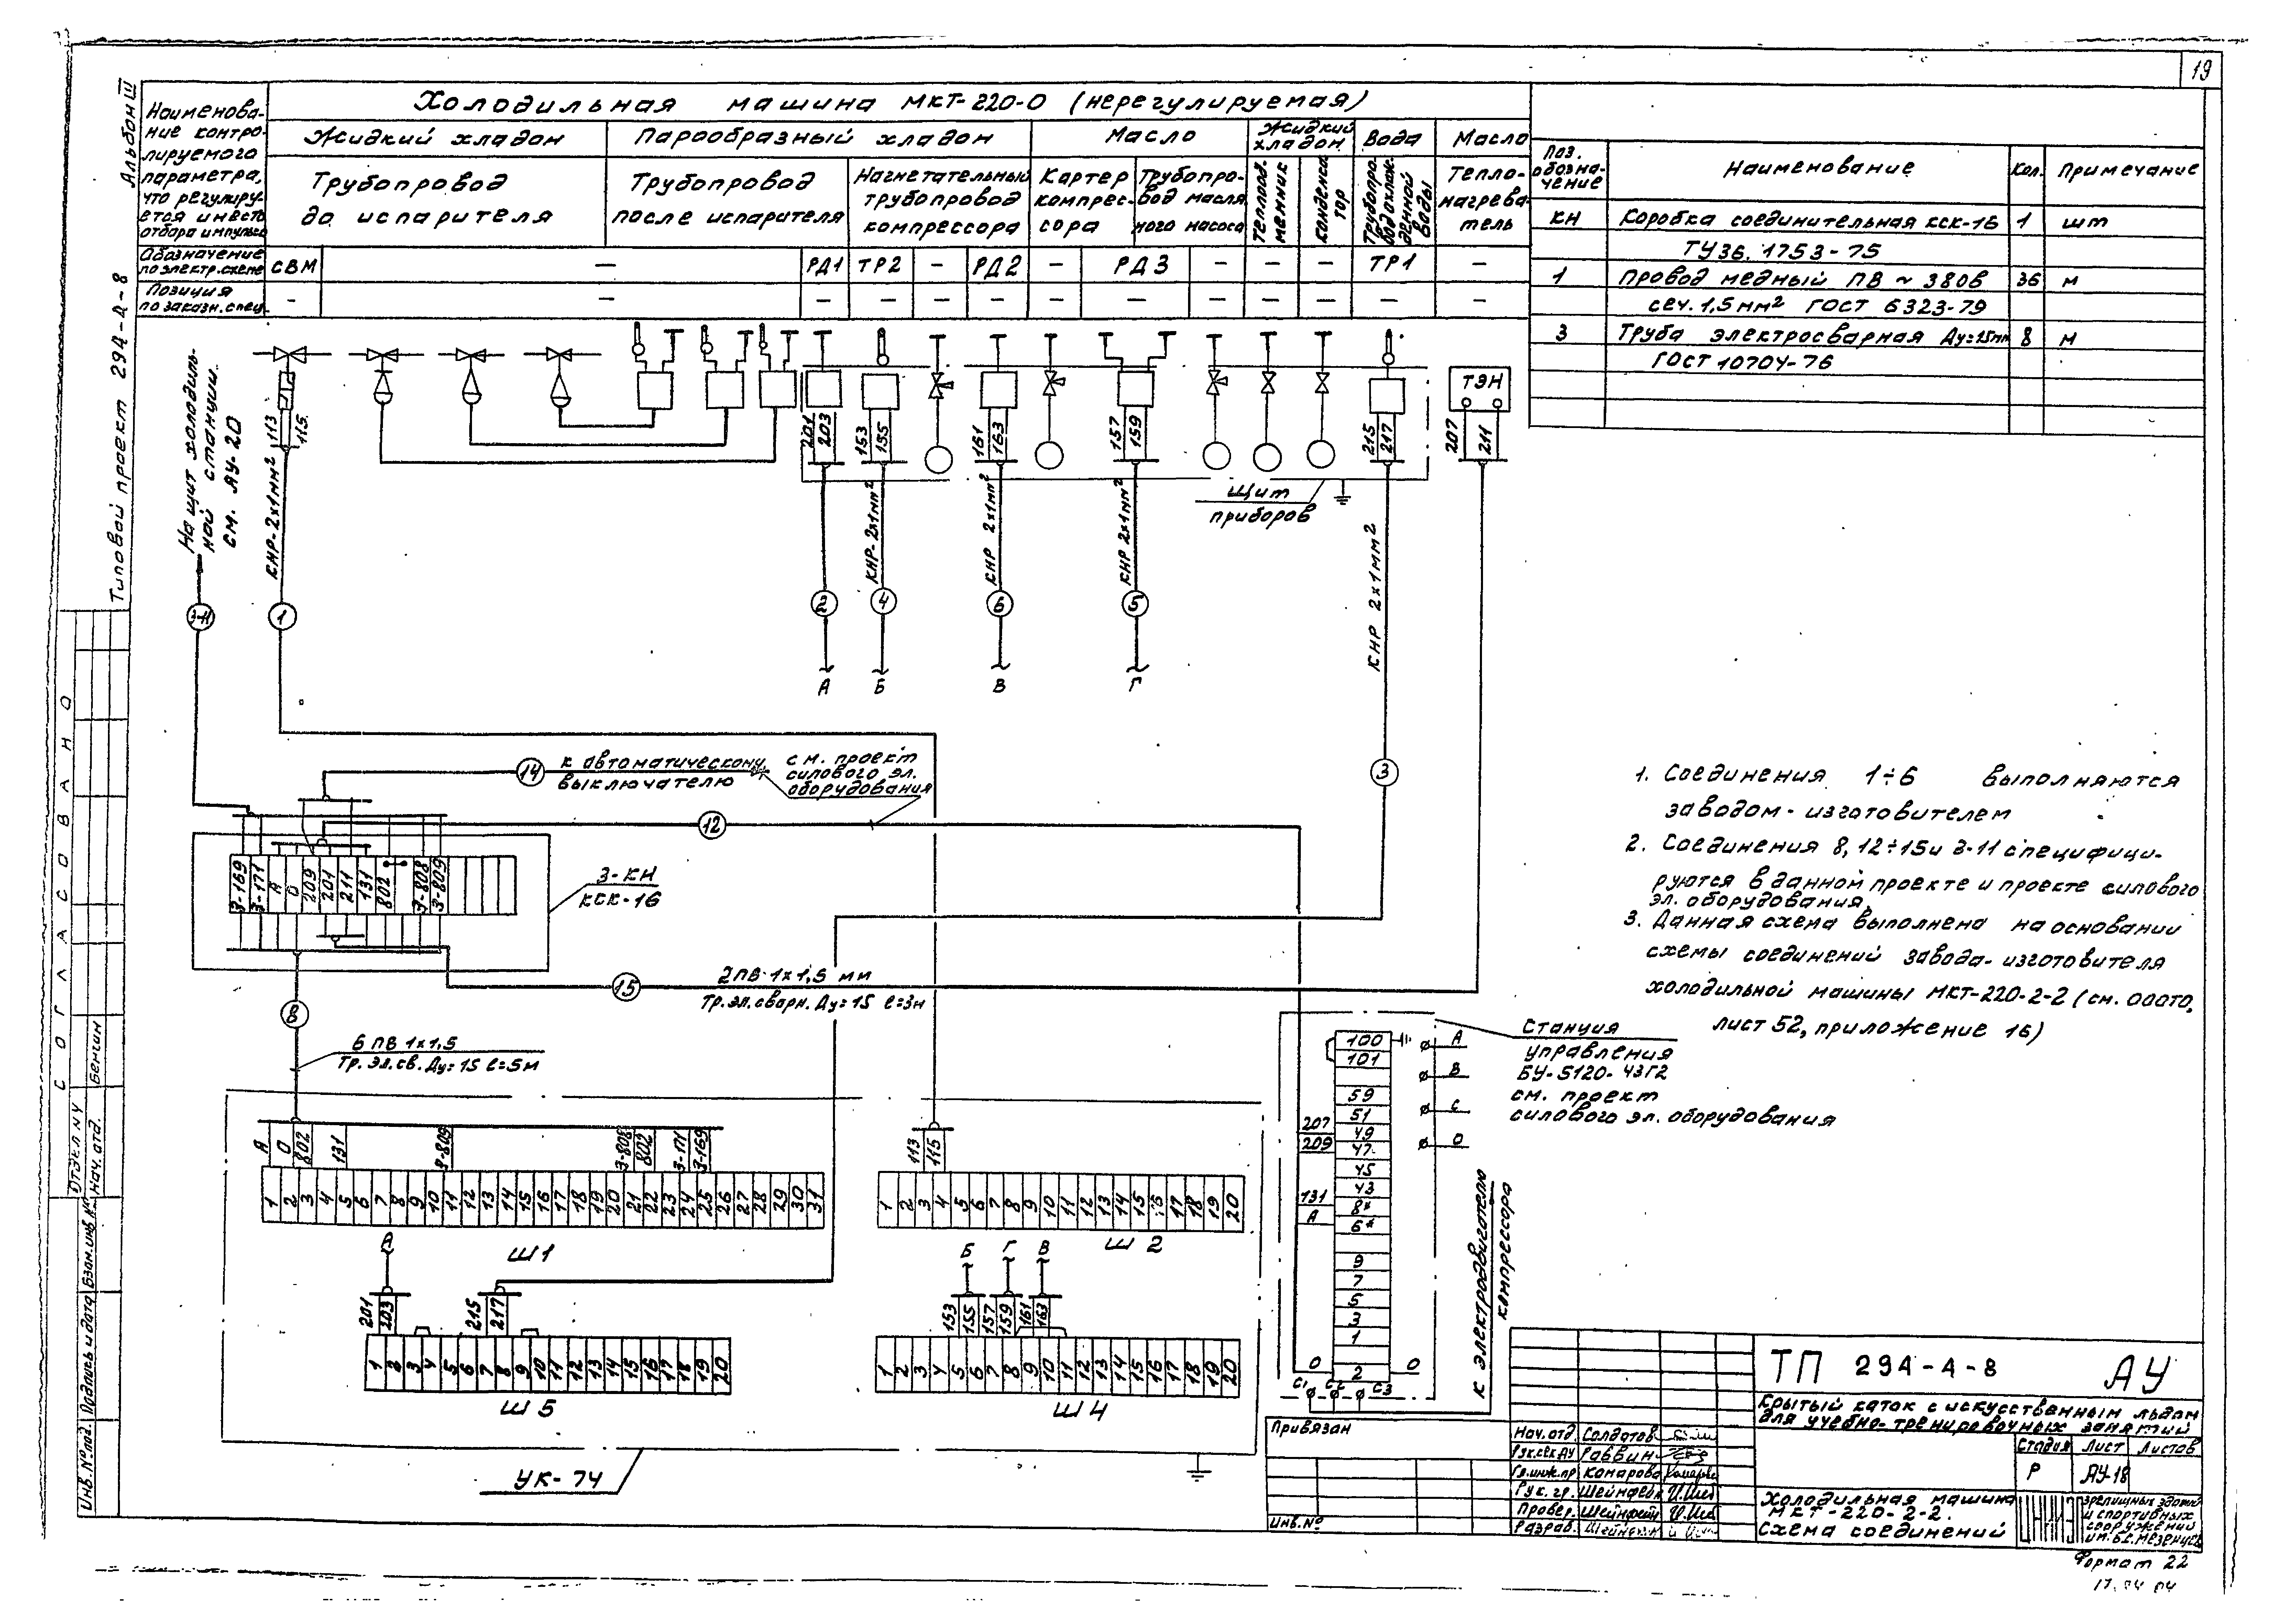 19
Альбом III
Типовой проект 294-4-8
Наименова-
ние контро-
лируемого
параметра,
что регулиру-
ется и место
отбора импульса
Холодильная машина МКТ-220-0 (нерегулируемая)
Жидкий хладон
Парообразный хладон
Масло
Жидкий
хладон
Вода
Масло
Трубопровод
до испарителя
Трубопровод
после испарителя
Нагнетательный
трубопровод
компрессора
Картер
компрес-
сора
Трубопро-
вод масля
ного насоса
Теплооб.
менник
Конденса
тор
Трубопро.
вод охлаж.
денной
воды
Тепло-
нагрева-
тель
Обозначение
по электр.схеме
СВМ
—
РД1
ТР2
—
РД2
—
РД3
—
—
—
ТР1
—
Позиция
по заказн.спец.
— — — — — — — — — — — — —
Поз.
обозна-
чение
Наименование
Кол.
Примечание
КН
Коробка соединительная КСК-16
1
шт
ТУ36.1753-75
1
Провод медный ПВ ~ 380в
36
м
сеч. 1,5 мм² ГОСТ 6323-79
3
Труба электросварная Ду=15мм
8
м
ГОСТ 10704-76
На щит холодиль-
ной станции.
см. АУ-20
3-11
113
115
КНР-2х1мм²
1
201
203
2
А
153
155
КНР-2х1мм²
4
Б
161
163
КНР 2х1мм²
6
В
157
159
КНР 2х1мм²
5
Г
215
217
КНР 2х1мм²
3
ТЭН
207
211
Щит
приборов
14
к автоматическому
выключателю
см. проект
силового эл.
оборудования
12
3-169
3-171
А
О
209
201
211
131
802
3-808
3-809
3-КН
КСК-16
15
2ПВ 1х1,5 мм
Тр.эл.сварн. Ду=15 l=3м
8
6 ПВ 1х1,5
Тр.Эл.св. Ду=15 l=5м
А
О
802
131
3-809
3-808
802
3-171
3-169
1 2 3 4 5 6 7 8 9 10 11 12 13 14 15 16 17 18 19 20 21 22 23 24 25 26 27 28 29 30 31
Ш1
113
115
1 2 3 4 5 6 7 8 9 10 11 12 13 14 15 16 17 18 19 20
Ш 2
А
201
203
215
217
1 2 3 4 5 6 7 8 9 10 11 12 13 14 15 16 17 18 19 20
Ш 5
Б
Г
В
153
155
157
159
161
163
1 2 3 4 5 6 7 8 9 10 11 12 13 14 15 16 17 18 19 20
Ш 4
УК-74
100
101
59
51
49
47
45
43
8*
6*
9
7
5
3
1
2
207
209
131
А
О
О
С1 С2 С3
А
В
С
О
Станция
управления
БУ-5120-43Г2
см. проект
силового эл. оборудования
К электродвигателю
компрессора
1. Соединения 1÷6 выполняются
заводом-изготовителем
2. Соединения 8, 12÷15 и 3-11 специфици-
руются в данной проекте и проекте силового
эл. оборудования.
3. Данная схема выполнена на основании
схемы соединений завода-изготовителя
холодильной машины МКТ-220-2-2 (см. ОООТО,
лист 52, приложение 16)
СОГЛАСОВАНО
Отдел НУ
Нач. отд.
Бенгин
Взам.инв №
Подпись и дата
Инв.№ под.
Привязан
Инв.№
Нач.отд. Солдатов
Рук.сек АУ Раввин
Гл.инж.пр Комарова
Рук. гр. Шейнфейн
Провер. Шейнфейн
Разраб. Шейнфейн
ТП 294-4-8 АУ
Крытый каток с искусственным льдом
для учебно-тренировочных занятий
Стадия
Лист
Листов
Р
АУ-18
Холодильная машина
МКТ-220-2-2.
Схема соединений
зрелищных зданий
и спортивных
сооружений
им. Б.С. Мезенцева
Формат 22